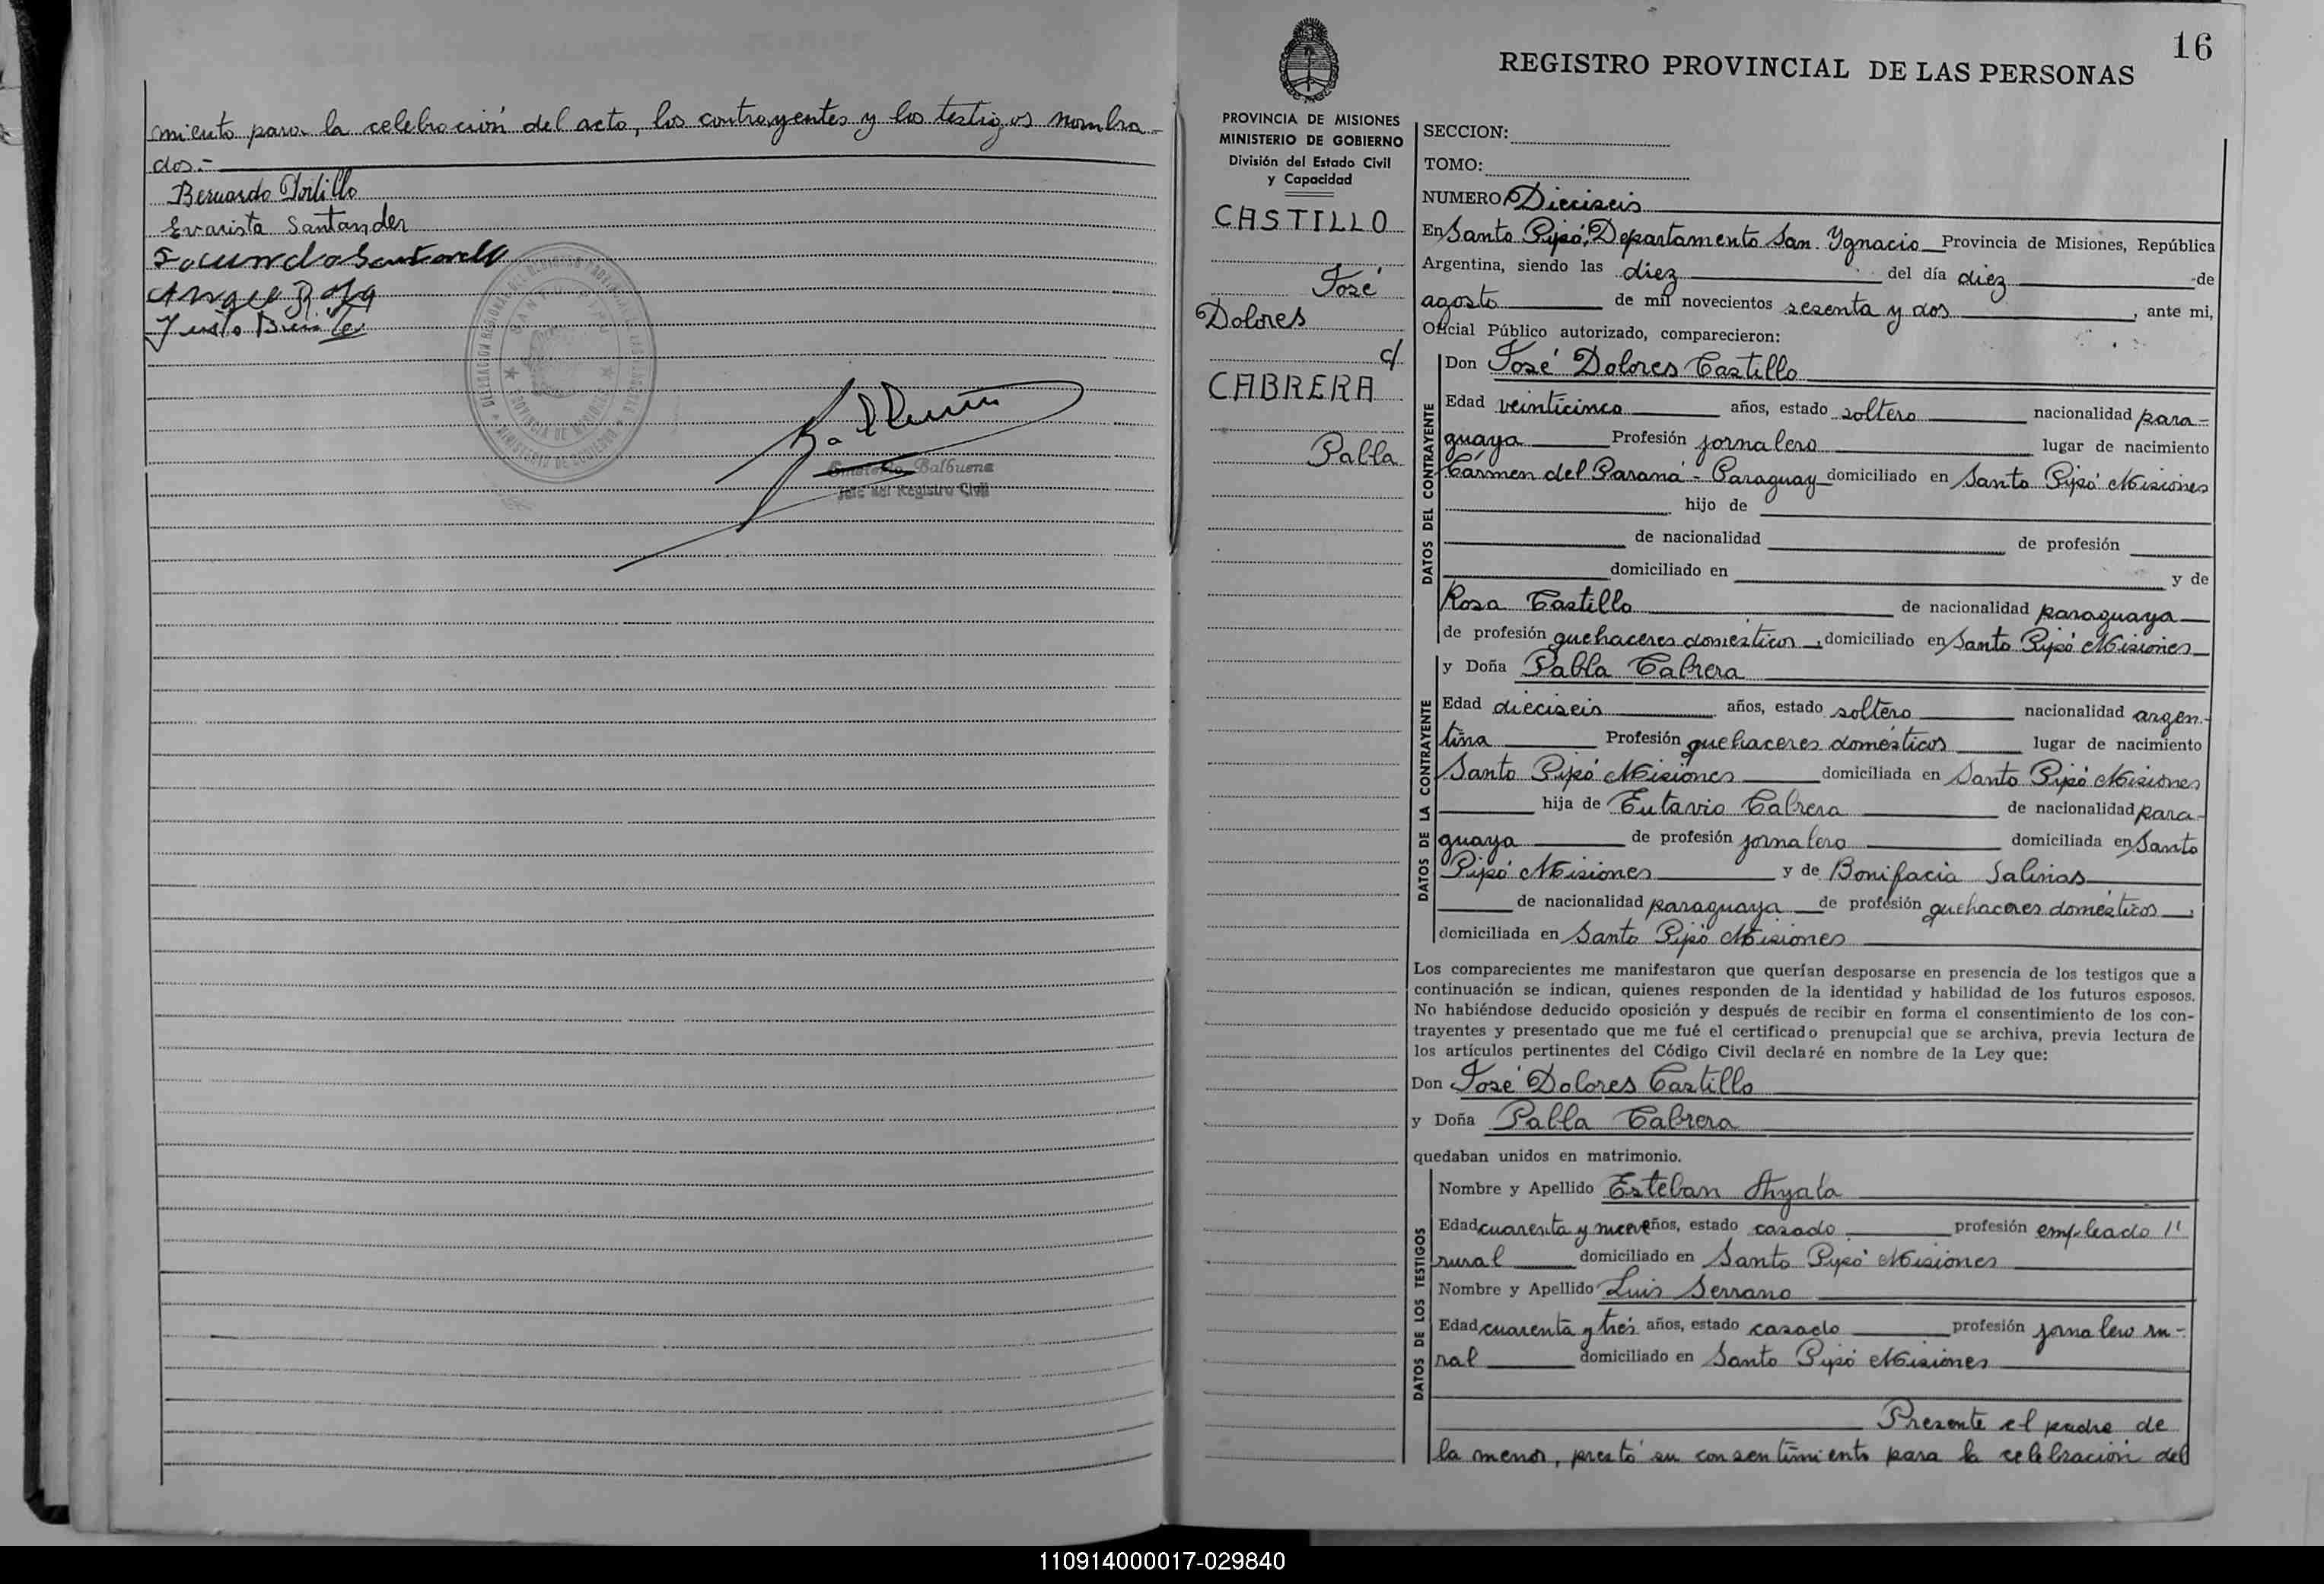 miento para la celebración del acto, los contrayentes y los testigos nombra-
dos.-
Bernardo Portillo
Evarista Santander
Facundo Santander
Justo
DELEGACION REGIONAL DEL REGISTRO PROVINCIAL DE LAS PERSONAS
SANTO PIPO
PROVINCIA DE MISIONES
MINISTERIO DE GOBIERNO
Balbuena
Jefe del Registro Civil
16
REGISTRO PROVINCIAL DE LAS PERSONAS
PROVINCIA DE MISIONES
MINISTERIO DE GOBIERNO
División del Estado Civil
y Capacidad
CASTILLO
José
Dolores
c/
CABRERA
Pabla
SECCION:
TOMO:
NUMERO: Dieciseis
En Santo Pipó, Departamento San Ygnacio Provincia de Misiones, República
Argentina, siendo las diez del día diez de
agosto de mil novecientos sesenta y dos, ante mi,
Oficial Público autorizado, comparecieron:
DATOS DEL CONTRAYENTE
Don José Dolores Castillo
Edad veinticinco años, estado soltero nacionalidad para-
guaya Profesión jornalero lugar de nacimiento
Cármen del Paraná - Paraguay domiciliado en Santo Pipó Misiones
hijo de
de nacionalidad de profesión
domiciliado en y de
Rosa Castillo de nacionalidad paraguaya
de profesión quehaceres domésticos, domiciliado en Santo Pipó Misiones
DATOS DE LA CONTRAYENTE
y Doña Pabla Cabrera
Edad dieciseis años, estado soltero nacionalidad argen-
tina Profesión quehaceres domésticos lugar de nacimiento
Santo Pipó Misiones domiciliada en Santo Pipó Misiones
hija de Eutavio Cabrera de nacionalidad para-
guaya de profesión jornalero domiciliada en Santo
Pipó Misiones y de Bonifacia Salinas
de nacionalidad paraguaya de profesión quehaceres domésticos,
domiciliada en Santo Pipó Misiones
Los comparecientes me manifestaron que querían desposarse en presencia de los testigos que a
continuación se indican, quienes responden de la identidad y habilidad de los futuros esposos.
No habiéndose deducido oposición y después de recibir en forma el consentimiento de los con-
trayentes y presentado que me fué el certificado prenupcial que se archiva, previa lectura de
los artículos pertinentes del Código Civil declaré en nombre de la Ley que:
Don José Dolores Castillo
y Doña Pabla Cabrera
quedaban unidos en matrimonio.
DATOS DE LOS TESTIGOS
Nombre y Apellido Esteban Ayala
Edad cuarenta y nueve años, estado casado profesión empleado
rural domiciliado en Santo Pipó Misiones
Nombre y Apellido Luis Serrano
Edad cuarenta y trés años, estado casado profesión jornalero ru-
ral domiciliado en Santo Pipó Misiones
Presente el padre de
la menor, prestó su consentimiento para la celebración del
110914000017-029840